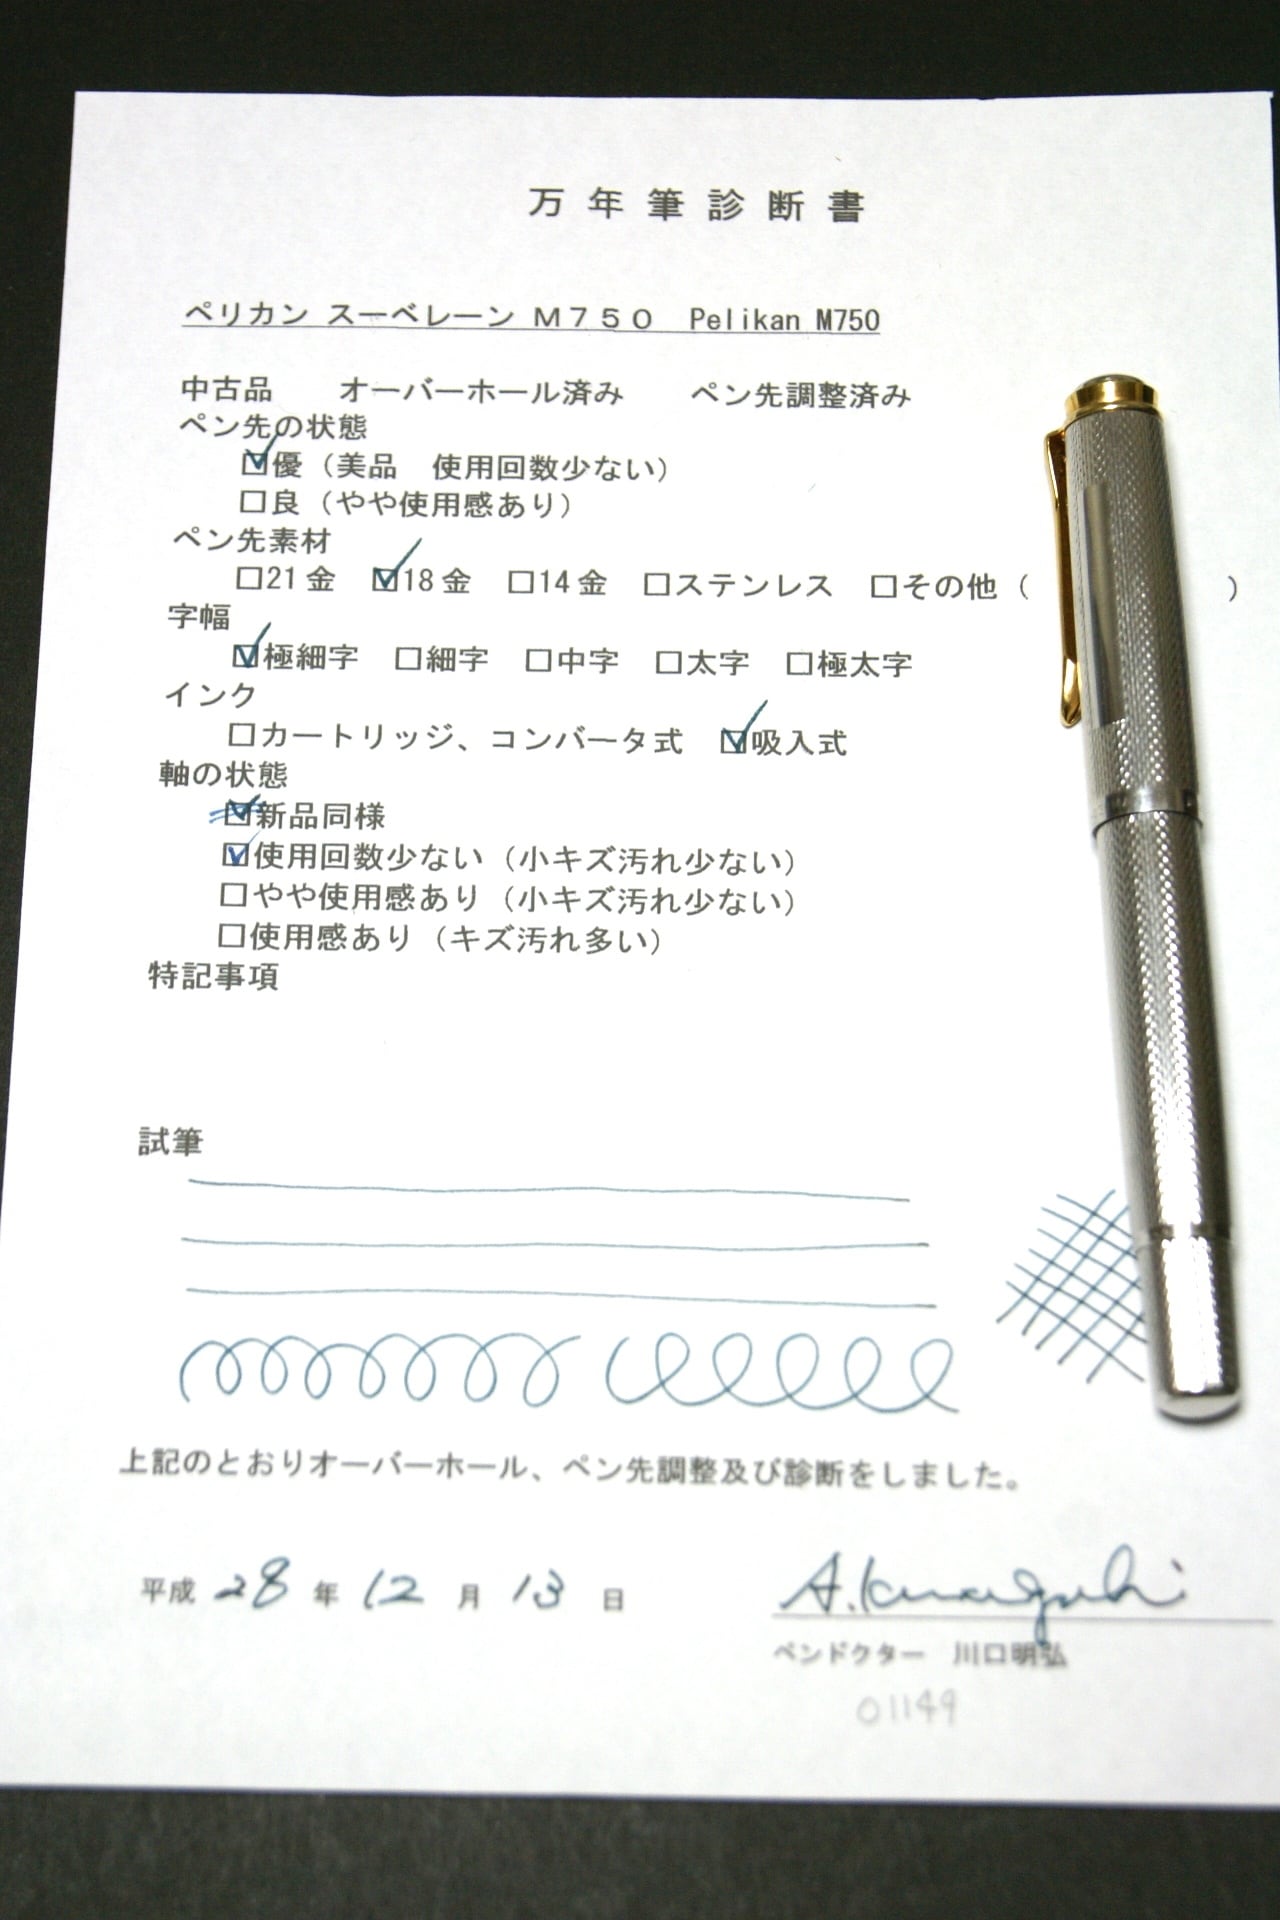 万年筆診断書
ペリカン スーベレーン M750 Pelikan M750
中古品 オーバーホール済み ペン先調整済み
ペン先の状態
☑優（美品 使用回数少ない）
□良（やや使用感あり）
ペン先素材
□21金 ☑18金 □14金 □ステンレス □その他（ ）
字幅
☑極細字 □細字 □中字 □太字 □極太字
インク
□カートリッジ、コンバータ式 ☑吸入式
軸の状態
☑新品同様
☑使用回数少ない（小キズ汚れ少ない）
□やや使用感あり（小キズ汚れ少ない）
□使用感あり（キズ汚れ多い）
特記事項
試筆
上記のとおりオーバーホール、ペン先調整及び診断をしました。
平成 28 年 12 月 13 日
A.Kawaguchi
ペンドクター 川口明弘
01149